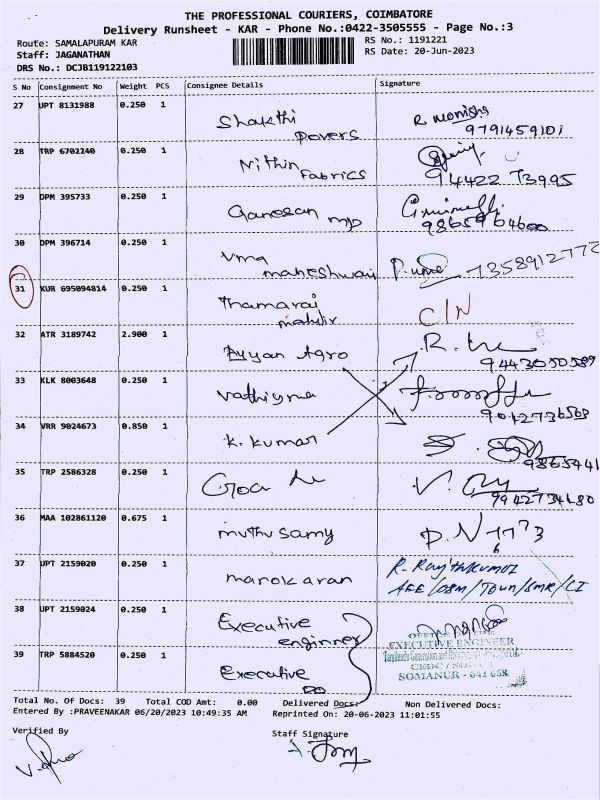 THE PROFESSIONAL COURIERS, COIMBATORE
Delivery Runsheet - KAR - Phone No.:0422-3505555 - Page No.:3
Route: SAMALAPURAM KAR
RS No.: 1191221
Staff: JAGANATHAN
RS Date: 20-Jun-2023
DRS No.: DCJB119122103
S No Consignment No Weight PCS Consignee Details Signature
27 UPT 8131988 0.250 1 Shakthi R Monisha
Povers 9791459101
28 TRP 6702240 0.250 1 Nithin
Fabrics 94422 73995
29 DPM 395733 0.250 1 Ganesan
9865964600
30 DPM 396714 0.250 1 Uma P. uma
maheshwari 7358912772
31 KUR 695094814 0.250 1 Thamarai
C/N
32 ATR 3189742 2.900 1 Ayyan Agro
9443050589
33 KLK 8003648 0.250 1
9042736563
34 VRR 9024673 0.850 1 K. Kumar
9865941
35 TRP 2586328 0.250 1
9942734680
36 MAA 102861120 0.675 1 muthusamy
37 UPT 2159020 0.250 1 manokaran R. Rajthkumar
AEE/O&M/TOWN/SMR/CI
38 UPT 2159024 0.250 1 Executive
enginner
EXECUTIVE ENGINEER
39 TRP 5884520 0.250 1 Executive
SOMANUR - 641 668
Total No. Of Docs: 39 Total COD Amt: 0.00 Delivered Docs: Non Delivered Docs:
Entered By :PRAVEENAKAR 06/20/2023 10:49:35 AM Reprinted On: 20-06-2023 11:01:55
Verified By Staff Signature